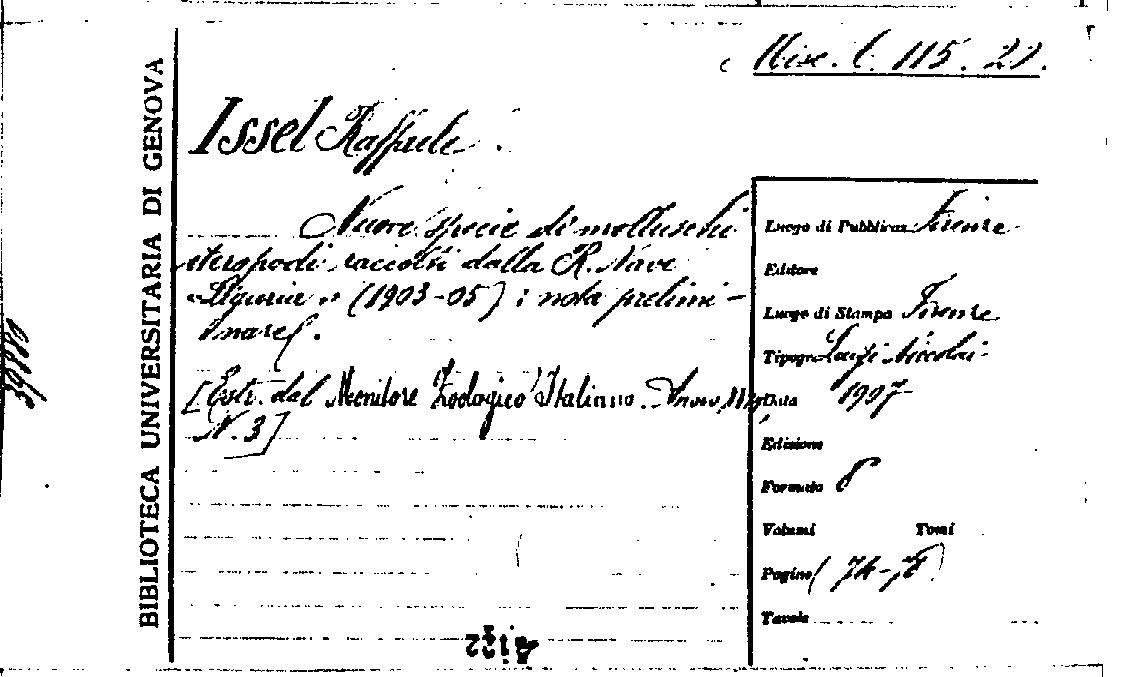 Misc. C. 115. 21.
BIBLIOTECA UNIVERSITARIA DI GENOVA
Issel Raffaele.
Nuove specie di molluschi
eteropodi raccolti dalla R. Nave
"Liguria" (1903-05); nota prelimi-
nare.
[Estr. dal Monitore Zoologico Italiano. Anno
N. 3]
Luogo di Pubblicaz. Firenze
Editore
Luogo di Stampa Firenze
Tipogr. Luigi Niccolai
Data 1907
Edizione
Formato 8
Volumi Tomi
Pagine (74-78)
Tavole